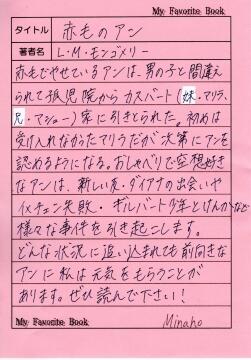 My Favorite Book
タイトル 赤毛のアン
著者名 L・M・モンゴメリー
赤毛でやせているアンは、男の子と間違え
られて孤児院からカスバート(妹・マリラ、
兄・マシュー)家に引きとられた。初めは
受け入れなかったマリラだが次第にアンを
認めるようになる。おしゃべりで空想好き
なアンは、新しい友・ダイアナの出会いや
イメチェン失敗・ギルバート少年とけんかなど
様々な事件を引き起こします。
どんな状況に追い込まれても前向きな
アンに私は元気をもらうことが
あります。ぜひ読んで下さい!
My Favorite Book
Minaho